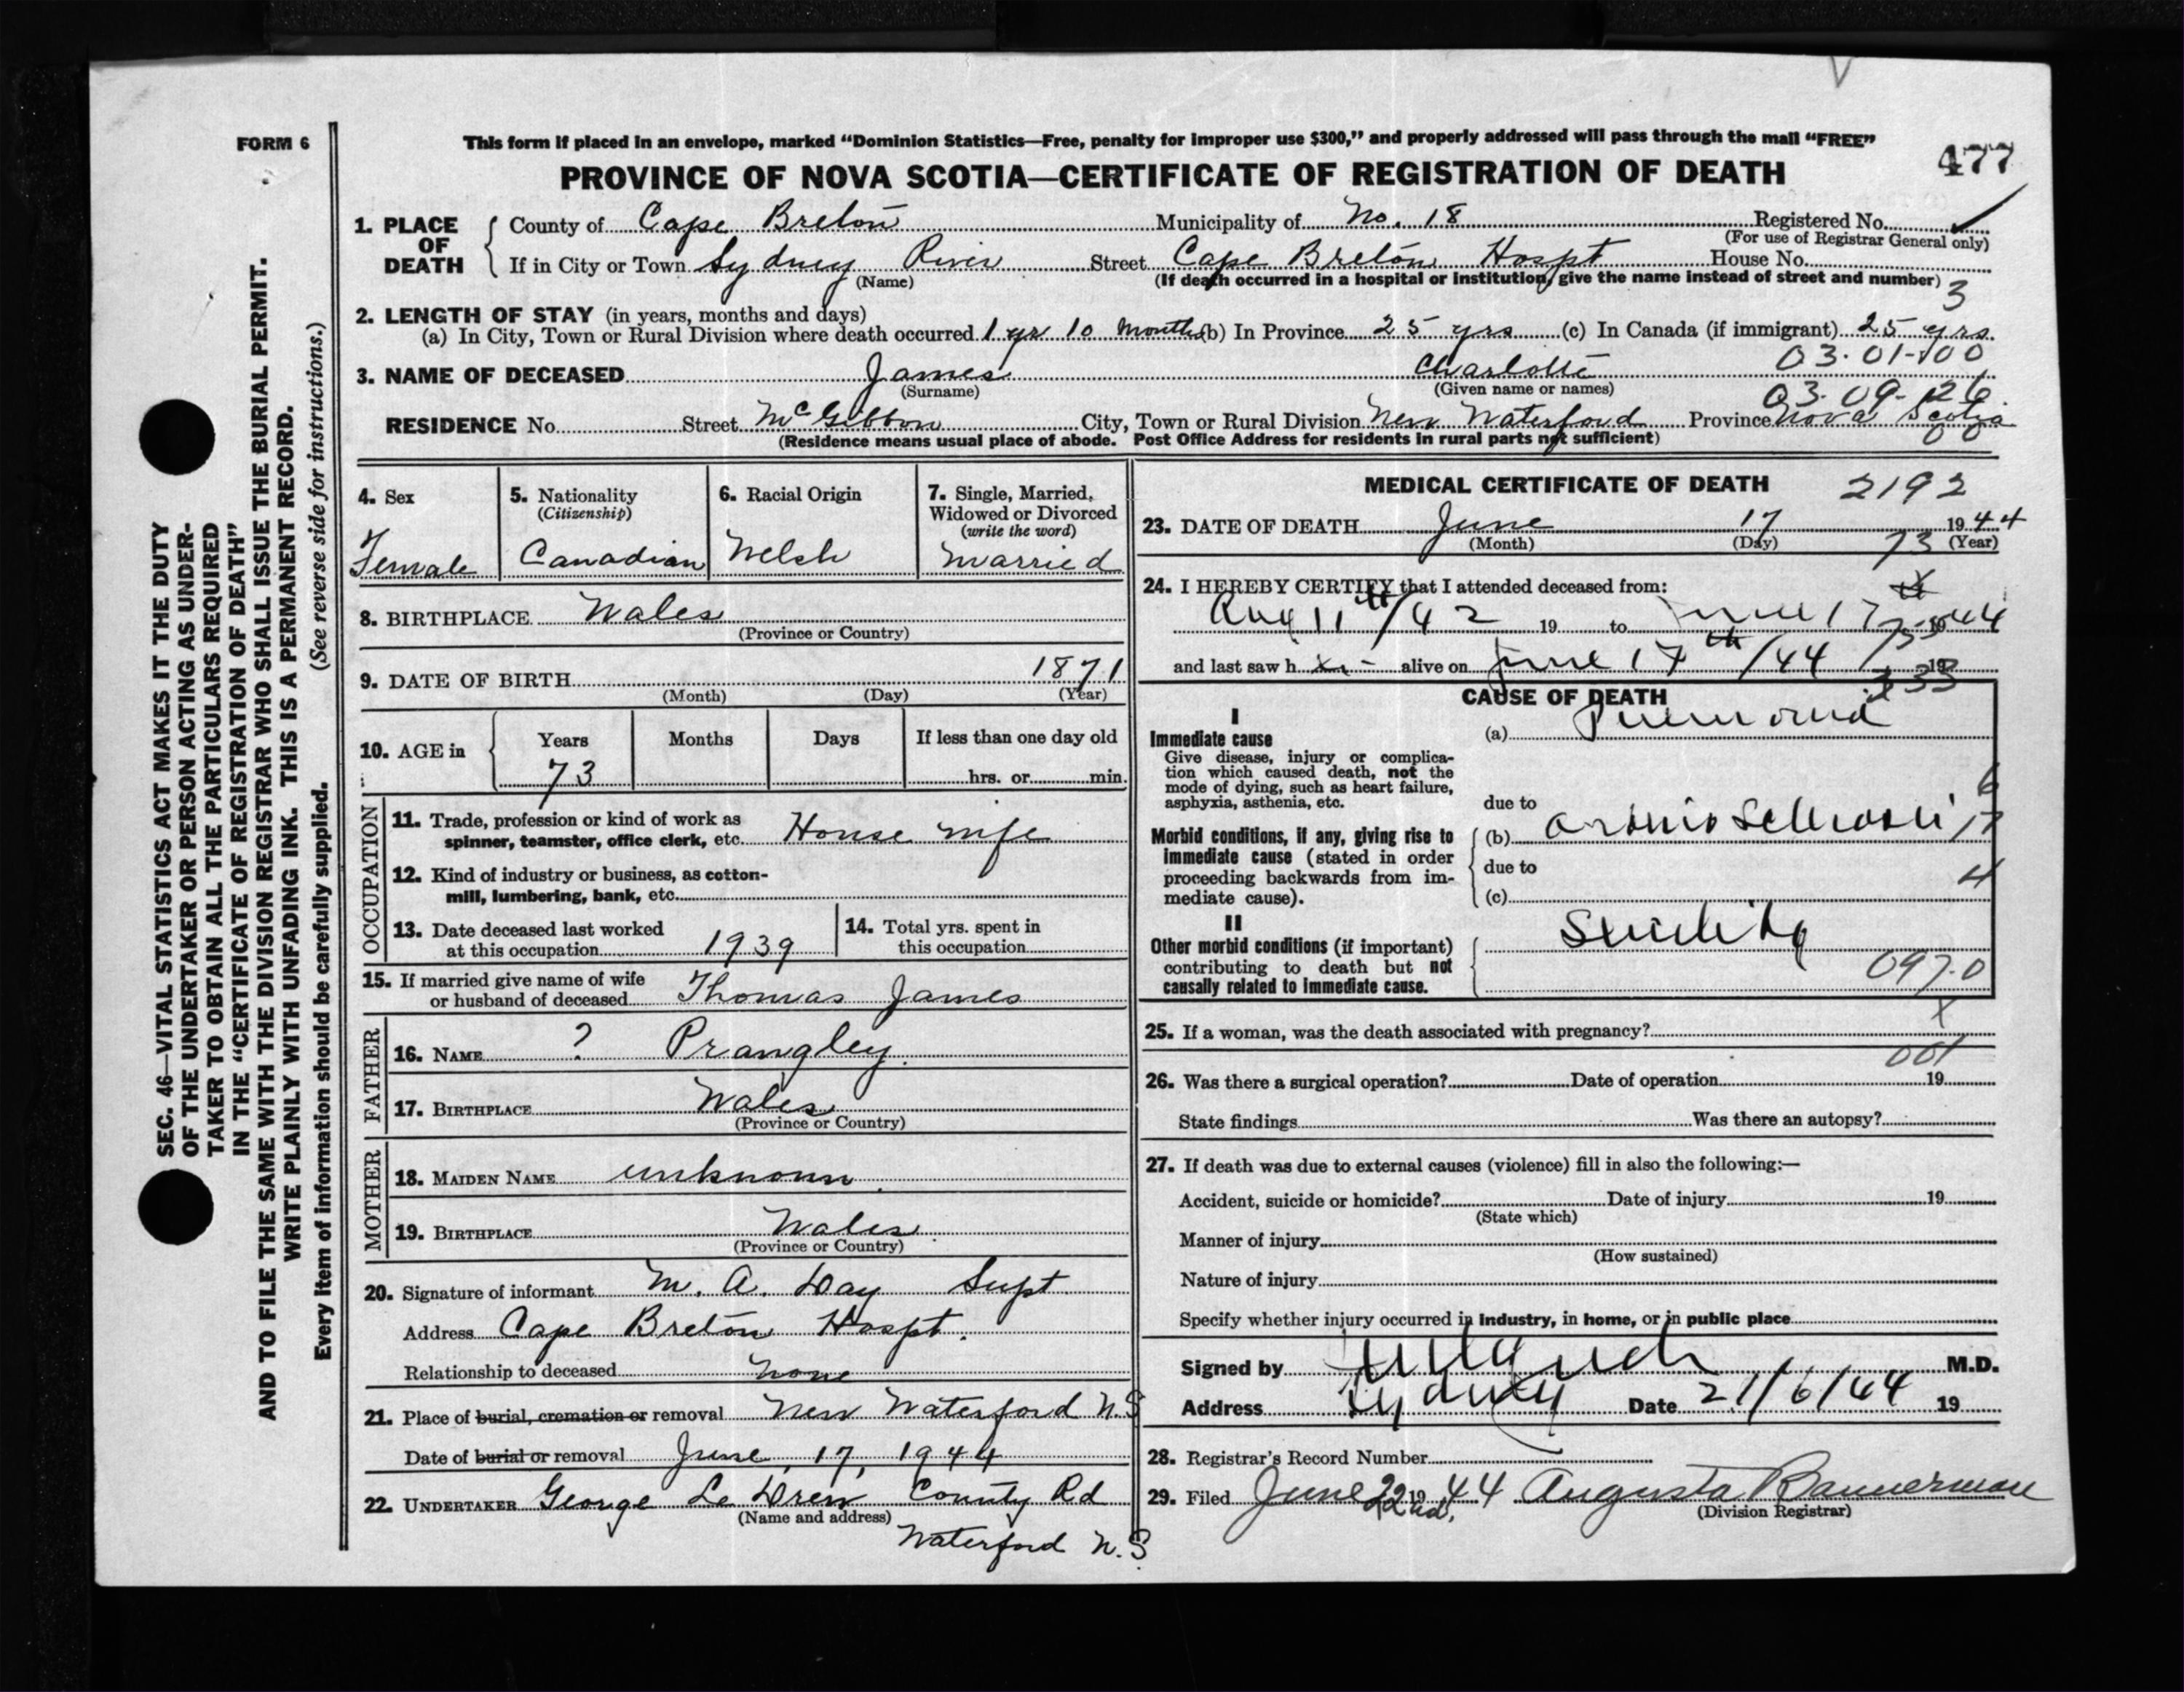 FORM 6
This form if placed in an envelope, marked “Dominion Statistics—Free, penalty for improper use $300,” and properly addressed will pass through the mail “FREE”
477
PROVINCE OF NOVA SCOTIA—CERTIFICATE OF REGISTRATION OF DEATH
1. PLACE OF DEATH
County of Cape Breton Municipality of No. 18 Registered No.
(For use of Registrar General only)
If in City or Town Sydney River Street Cape Breton Hospt House No.
(Name) (If death occurred in a hospital or institution, give the name instead of street and number)
3
2. LENGTH OF STAY (in years, months and days)
(a) In City, Town or Rural Division where death occurred 1 yr 10 months (b) In Province 25 yrs (c) In Canada (if immigrant) 25 yrs.
03-01-100
3. NAME OF DECEASED James Charlotte
(Surname) (Given name or names)
03-09-126
RESIDENCE No. Street McGibbon City, Town or Rural Division New Waterford Province Nova Scotia
(Residence means usual place of abode. Post Office Address for residents in rural parts not sufficient)
00
4. Sex
Female
5. Nationality
(Citizenship)
Canadian
6. Racial Origin
Welsh
7. Single, Married, Widowed or Divorced
(write the word)
Married
8. BIRTHPLACE Wales
(Province or Country)
9. DATE OF BIRTH 1871
(Month) (Day) (Year)
10. AGE in
Years Months Days If less than one day old
73 hrs. or min.
OCCUPATION
11. Trade, profession or kind of work as
spinner, teamster, office clerk, etc. House wife
12. Kind of industry or business, as cotton-
mill, lumbering, bank, etc.
13. Date deceased last worked
at this occupation 1939
14. Total yrs. spent in
this occupation
15. If married give name of wife
or husband of deceased Thomas James
FATHER
16. NAME ? Prangley
17. BIRTHPLACE Wales
(Province or Country)
MOTHER
18. MAIDEN NAME unknown
19. BIRTHPLACE Wales
(Province or Country)
20. Signature of informant M. A. Day Supt
Address Cape Breton Hospt.
Relationship to deceased none
21. Place of burial, cremation or removal New Waterford N.S
Date of burial or removal June, 17, 1944
22. UNDERTAKER George Le Drew County Rd
(Name and address)
Waterford N.S
MEDICAL CERTIFICATE OF DEATH
2192
23. DATE OF DEATH June 17 1944
(Month) (Day) (Year)
73
24. I HEREBY CERTIFY that I attended deceased from:
Aug 11th/42 19 to June 17 1944
and last saw h alive on June 17th/44 19
CAUSE OF DEATH
I
Immediate cause
Give disease, injury or complica-
tion which caused death, not the
mode of dying, such as heart failure,
asphyxia, asthenia, etc.
(a) Pneumonia
due to
Morbid conditions, if any, giving rise to
immediate cause (stated in order
proceeding backwards from im-
mediate cause).
(b)
due to
(c)
6
17
4
II
Other morbid conditions (if important)
contributing to death but not
causally related to immediate cause.
Senility
097.0
25. If a woman, was the death associated with pregnancy?
X
001
26. Was there a surgical operation? Date of operation 19
State findings Was there an autopsy?
27. If death was due to external causes (violence) fill in also the following:—
Accident, suicide or homicide? Date of injury 19
(State which)
Manner of injury
(How sustained)
Nature of injury
Specify whether injury occurred in industry, in home, or in public place
Signed by M.D.
Address Sydney Date 21/6/44 19
28. Registrar's Record Number
29. Filed June 22nd, 19 44 Augusta Bannerman
(Division Registrar)
SEC. 46—VITAL STATISTICS ACT MAKES IT THE DUTY
OF THE UNDERTAKER OR PERSON ACTING AS UNDER-
TAKER TO OBTAIN ALL THE PARTICULARS REQUIRED
IN THE “CERTIFICATE OF REGISTRATION OF DEATH”
AND TO FILE THE SAME WITH THE DIVISION REGISTRAR WHO SHALL ISSUE THE BURIAL PERMIT.
WRITE PLAINLY WITH UNFADING INK. THIS IS A PERMANENT RECORD.
Every item of information should be carefully supplied. (See reverse side for instructions.)